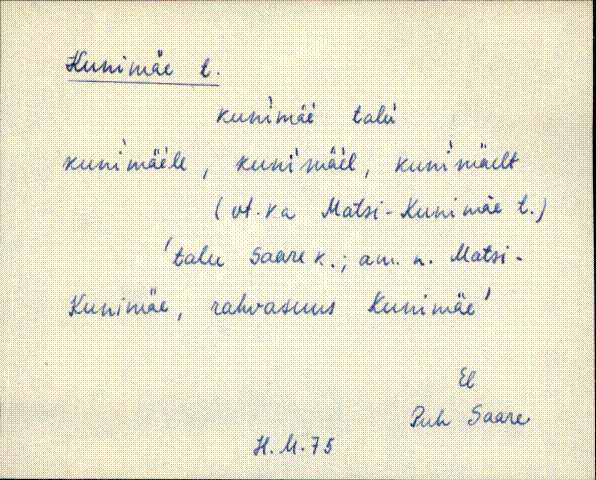 Kunimäe t.
kuni`mäe` talu`
kuni`mäe`le, kuni`mäe`l, kuni`mäelt
(vt. ka Matsi-Kunimäe t.)
'talu Saare k.; am. n. Matsi-
Kunimäe, rahvasuus Kunimäe'
El
Puh Saare
H.M.75